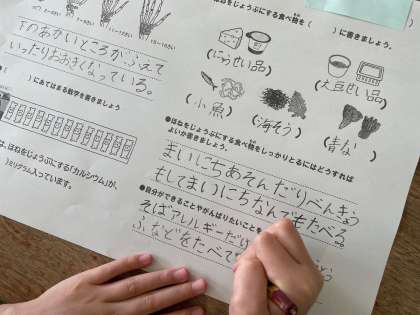 ほねをじょうぶにする食べ物を( )に書きましょう。
下のあかいところがふえて
いったりおおきくなっている。
(にゅうせい品)
(大豆せい品)
(小魚)
(海そう)
(青な)
( )にあてはまる数字を書きましょう
は、ほねをじょうぶにする「カルシウム」が、
)ミリグラム入っています。
●ほねをじょうぶにする食べ物をしっかりとるにはどうすれば
よいか書きましょう。
まいにちあそんだりべんきょう
もしてまいにちなんでもたべる。
●自分ができることやがんばりたいことを
そばアレルギーだけ
ふなどをたべて